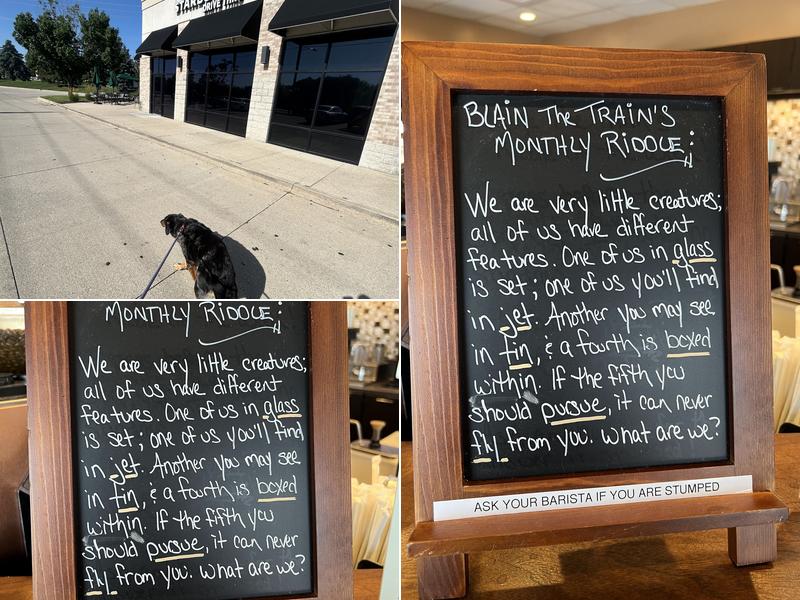 DRIVE THRU
BLAiN The TRAiN'S
MONTHLY RiDDLE:
We are very little creatures;
all of us have different
features. One of us in glass
is set; one of us you'll find
in jet. Another you may see
in tin, & a fourth is boxed
within. If the fifth you
should pursue, it can never
fly from you. What are we?
ASK YOUR BARISTA IF YOU ARE STUMPED
MONTHLY RiDDLE:
We are very little creatures;
all of us have different
features. One of us in glass
is set; one of us you'll find
in jet. Another you may see
in tin, & a fourth is boxed
within. If the fifth you
should pursue, it can never
fly from you. What are we?